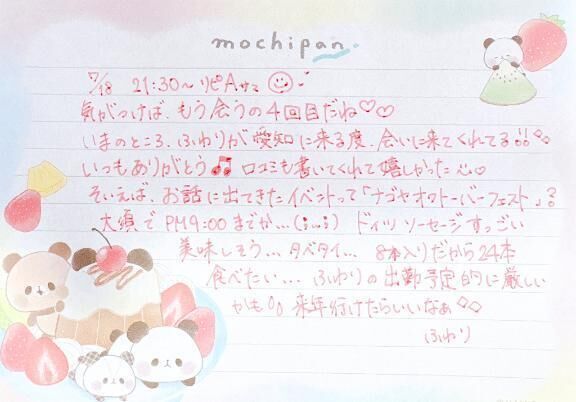 mochipan
7/18 21:30～リピAサマ
気がつけば、もう会うの4回目だね♡♡
いまのところ、ふわりが愛知に来る度、会いに来てくれてる!!
いつもありがとう🎵 口コミも書いてくれて嬉しかった
そいえば、お話に出てきたイベントって「ナゴヤオクトーバーフェスト」?
大須でPM9:00までか…(;_;) ドイツソーセージすっごい
美味しそう… タベタイ… 8本入りだから24本
食べたい… ふわりの出勤予定的に厳しい
かも 来年行けたらいいなぁ
ふわり